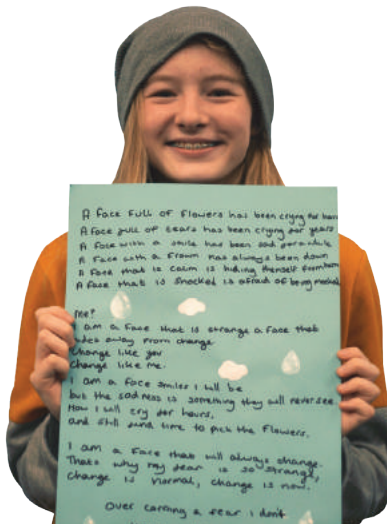 A face full of flowers has been crying for hours
A face full of tears has been crying for years
A face with a smile has been sad for a while
A face with a frown has always been down
A face that is calm is hiding themself from harm
A face that is shocked is afraid of being mocked
Me?
I am a face that is strange a face that
hides away from change
Change like you
Change like me.
I am a face smiles I will be
but the sadness is something they will never see
How I will cry for hours,
and still find time to pick the flowers.
I am a face that will always change.
Thats why my fear is so strange,
change is normal, change is now.
Over carring a fear I don't